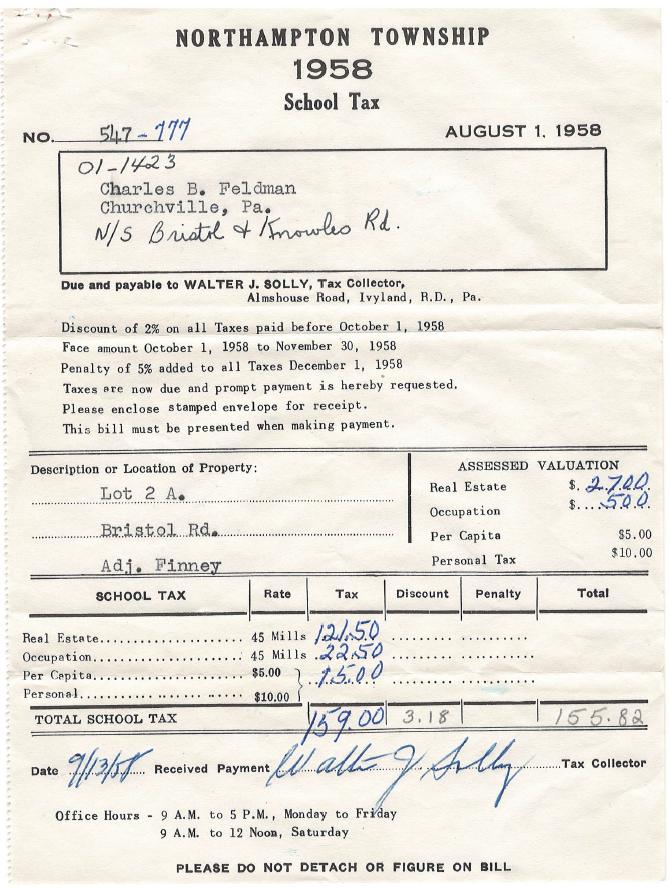 NORTHAMPTON TOWNSHIP
1958
School Tax
NO. 547-777 AUGUST 1, 1958
01-1423
Charles B. Feldman
Churchville, Pa.
N/S Bristol & Knowles Rd.
Due and payable to WALTER J. SOLLY, Tax Collector,
Almshouse Road, Ivyland, R.D., Pa.
Discount of 2% on all Taxes paid before October 1, 1958
Face amount October 1, 1958 to November 30, 1958
Penalty of 5% added to all Taxes December 1, 1958
Taxes are now due and prompt payment is hereby requested.
Please enclose stamped envelope for receipt.
This bill must be presented when making payment.
Description or Location of Property:
Lot 2 A.
Bristol Rd.
Adj. Finney
ASSESSED VALUATION
Real Estate $. 2700.
Occupation $.... 500.
Per Capita $5.00
Personal Tax $10.00
SCHOOL TAX Rate Tax Discount Penalty Total
Real Estate...................... 45 Mills 121.50 ........ ..........
Occupation....................... 45 Mills 22.50 ........ ..........
Per Capita....................... $5.00 } 15.00 ........ ..........
Personal......................... $10.00
TOTAL SCHOOL TAX 159.00 3.18 155.82
Date 9/13/58 Received Payment Walter J Solly Tax Collector
Office Hours - 9 A.M. to 5 P.M., Monday to Friday
9 A.M. to 12 Noon, Saturday
PLEASE DO NOT DETACH OR FIGURE ON BILL